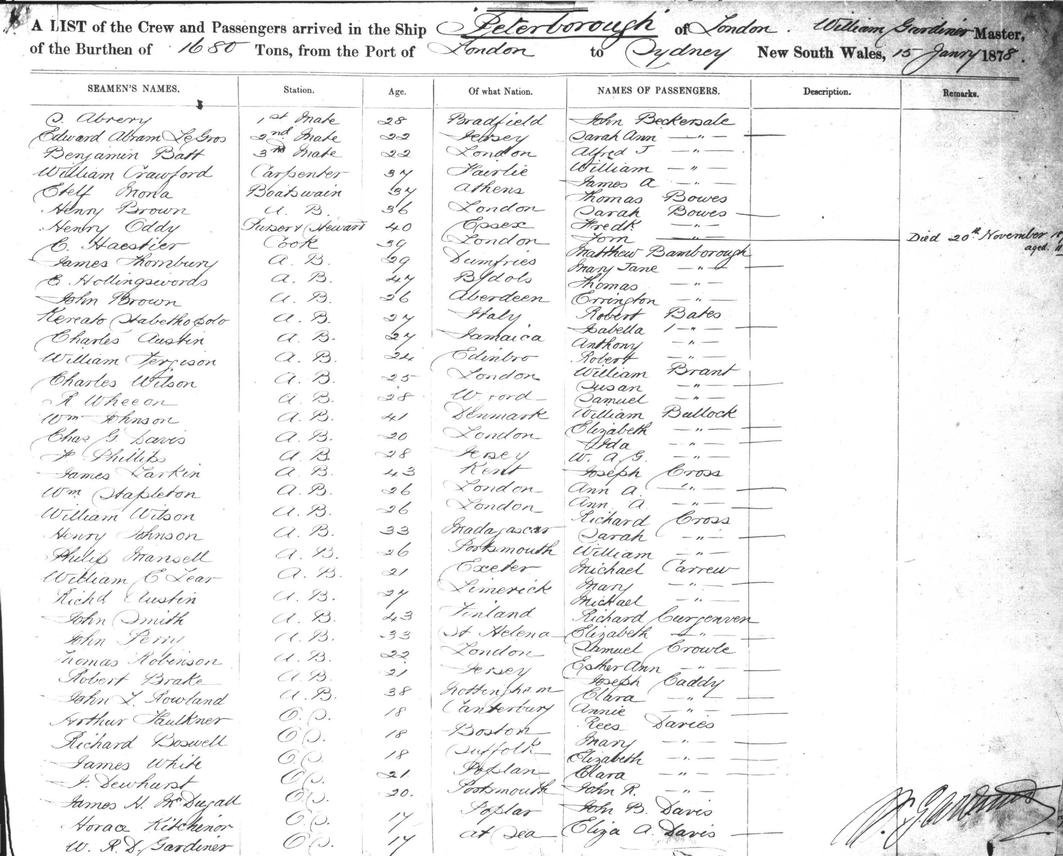 A LIST of the Crew and Passengers arrived in the Ship "Peterborough" of London. William Gardiner Master,
of the Burthen of 1680 Tons, from the Port of London to Sydney New South Wales, 15 Janry 1878.
SEAMEN'S NAMES. Station. Age. Of what Nation. NAMES OF PASSENGERS. Description. Remarks.
S. Abrery 1st Mate 28 Bradfield John Beckersale
Edward Abram LeGros 2nd Mate 22 Jersey Sarah Ann - " -
Benjamin Batt 3rd Mate 22 London Alfred J - " -
William Crawford Carpenter 37 Fairlie William - " -
James A. - " -
Mona Boatswain 37 Athens Thomas Bowes
Henry Brown A. B. 36 London Sarah Bowes
Henry Oddy Steward 40 Essex Fredk - " -
C. Haestier Cook 39 London Tom Died 20th November
aged.
James Thornbury A. B. 29 Dumfries Matthew Bamborough
Mary Jane - " -
E. Hollingswords A. B. 47 Thomas - " -
John Brown A. B. 26 Aberdeen Errington - " -
A. B. 27 Italy Robert Bates
Isabella - " -
Charles Austin A. B. 27 Jamaica Anthony - " -
William Fergison A. B. 24 Edinbro Robert - " -
Charles Wilson A. B. 25 London William Brant
Susan - " -
R Wheeon A. B. 28 Samuel - " -
Wm Johnson A. B. 41 Denmark William Bullock
Chas G Davis A. B. 20 London Elizabeth - " -
Ida - " -
Phillips A B 28 Jersey W. A. G. - " -
James Larkin A. B. 43 Kent Joseph Cross
Wm Stapleton A. B. 26 London Ann A. - " -
William Wilson A. B. 26 London Ann A - " -
Richard Cross
Henry Johnson A. B. 33 Madagascar Sarah - " -
Philip Mansell A. B. 26 Portsmouth William - " -
William E Lear A. B. 21 Exeter Michael Carrew
Richd Austin A. B. 27 Limerick Mary - " -
Michael - " -
John Smith A. B. 43 Finland Richard Curgenven
John Perry A. B. 33 St Helena Elizabeth - " -
Thomas Robinson A. B. 22 London Samuel Crowle
Robert Brake A. B. 21 Jersey Esther Ann - " -
Joseph Caddy
John L. Rowland A. B. 38 Nottingham Clara - " -
Arthur Faulkner O. S. 18 Canterbury Annie - " -
Richard Boswell O. S. 18 Boston Rees Davies
Mary - " -
James White O. S. 18 Suffolk Elizabeth - " -
J. Dewhurst O. S. 21 Poplar Clara - " -
James H. McDugall O. S. 20. Portsmouth John R. - " -
Horace Kitchinor O. S. 17 Poplar John B. Davis
W. R. D. Gardiner O. S. 17 at Sea Eliza A. Davis